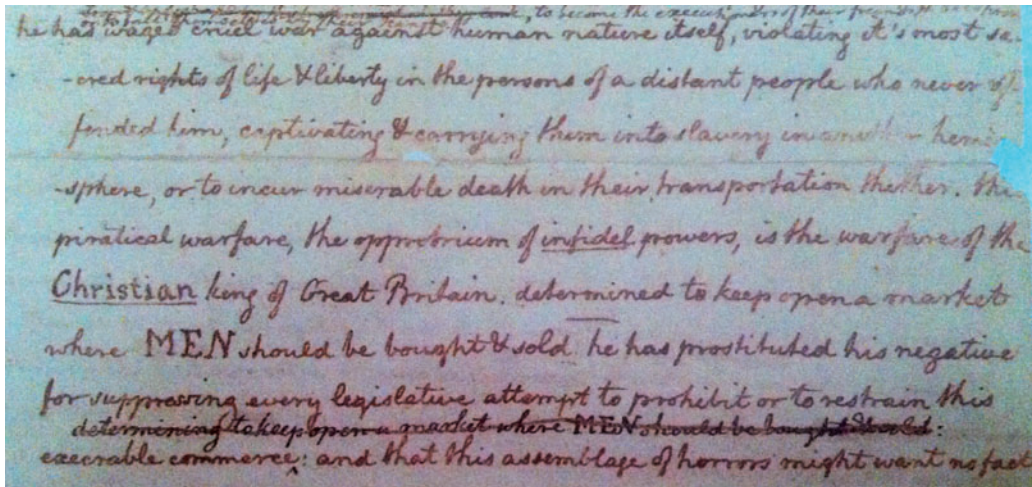 , to become the executioners of their friends &
or to fall themselves by their hands.
he has waged cruel war against human nature itself, violating it's most sa-
-cred rights of life & liberty in the persons of a distant people who never of
fended him, captivating & carrying them into slavery in another hemi
-sphere, or to incur miserable death in their transportation thither. this
piratical warfare, the opprobrium of infidel powers, is the warfare of the
Christian king of Great Britain. determined to keep open a market
where MEN should be bought & sold he has prostituted his negative
for suppressing every legislative attempt to prohibit or to restrain this
determining to keep open a market where MEN should be bought & sold:
execrable commerce: and that this assemblage of horrors might want no fact